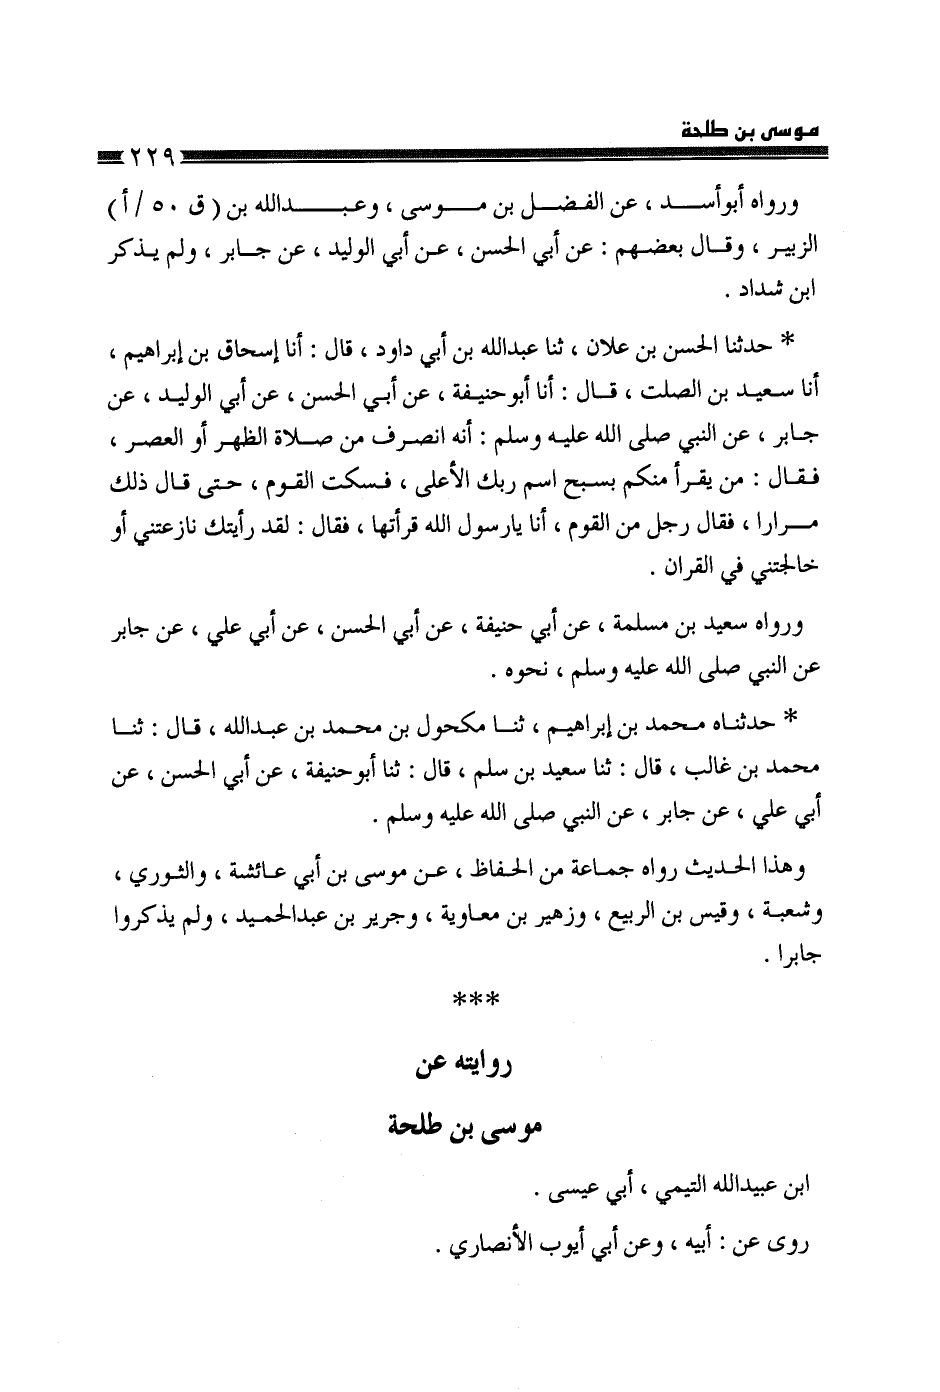 موسى بن طلحة
٢٢٩
ورواه أبوأســد ، عن الفضــل بن مــوسى ، وعبــدالله بن ( ق ٥٠ / أ )
الزبير ، وقال بعضهم : عن أبي الحسن ، عن أبي الوليد ، عن جابر ، ولم يذكر
ابن شداد .
* حدثنا الحسن بن علان ، ثنا عبدالله بن أبي داود ، قال : أنا إسحاق بن إبراهيم ،
أنا سعيد بن الصلت ، قال : أنا أبوحنيفة ، عن أبي الحسن ، عن أبي الوليد ، عن
جابر ، عن النبي صلى الله عليه وسلم : أنه انصرف من صلاة الظهر أو العصر ،
فقال : من يقرأ منكم بسبح اسم ربك الأعلى ، فسكت القوم ، حتى قال ذلك
مرارا ، فقال رجل من القوم ، أنا يارسول الله قرأتها ، فقال : لقد رأيتك نازعتني أو
خالجتني في القران .
ورواه سعيد بن مسلمة ، عن أبي حنيفة ، عن أبي الحسن ، عن أبي علي ، عن جابر
عن النبي صلى الله عليه وسلم ، نحوه .
* حدثناه محمد بن إبراهيم ، ثنا مكحول بن محمد بن عبدالله ، قال : ثنا
محمد بن غالب ، قال : ثنا سعيد بن سلم ، قال : ثنا أبوحنيفة ، عن أبي الحسن ، عن
أبي علي ، عن جابر ، عن النبي صلى الله عليه وسلم .
وهذا الحديث رواه جماعة من الحفاظ ، عن موسى بن أبي عائشة ، والثوري ،
وشعبة ، وقيس بن الربيع ، وزهير بن معاوية ، وجرير بن عبدالحميد ، ولم يذكروا
جابرا .
***
روايته عن
موسى بن طلحة
ابن عبيدالله التيمي ، أبي عيسى .
روى عن : أبيه ، وعن أبي أيوب الأنصاري .